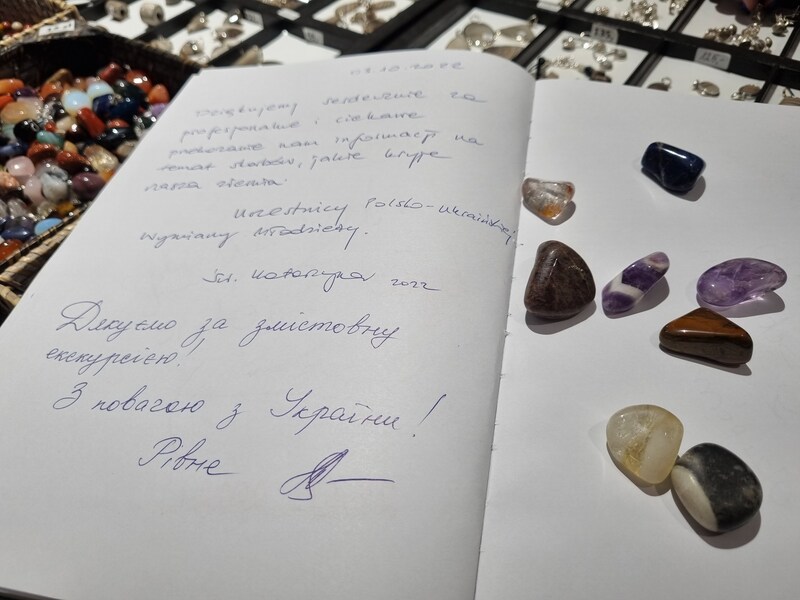 03.10.2022
Dziękujemy serdecznie za
profesjonalne i ciekawe
przekazanie nam informacji na
temat skarbów, jakie kryje
nasza ziemia.
Uczestnicy Polsko-Ukraińskiej
Wymiany Młodzieży.
Św. Katarzyna 2022
Дякуємо за змістовну
екскурсією!
З повагою з України!
Рівне
135,-
125,-